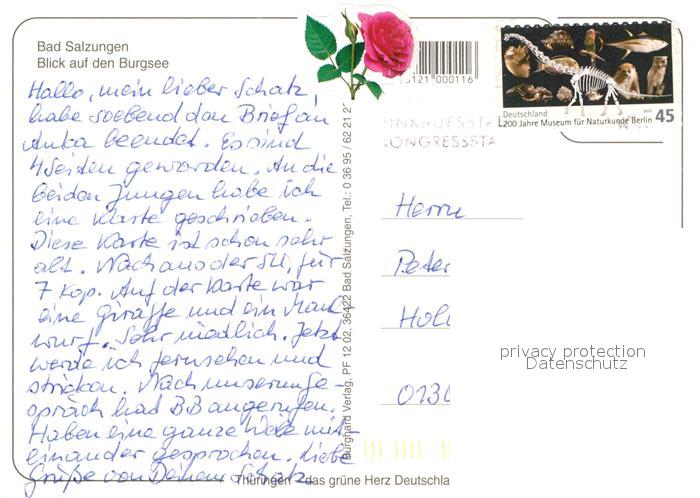 Bad Salzungen
Blick auf den Burgsee
Hallo, mein lieber Schatz
habe soebend den Brief an
Anka beendet. Es sind
4 Seiten geworden. An die
beiden Jungen habe ich
eine Karte geschrieben.
Diese Karte ist schon sehr
alt. Noch aus der SU, für
7 Kop. Auf der Karte war
eine Giraffe und ein Maul
wurf. Sehr niedlich. Jetzt
werde ich fernsehen und
stricken. Nach unserem Ge-
spräch hat BB angerufen.
Haben eine ganze Weile mit-
einander gesprochen. Liebe
Grüße von Deinem Schatz
Burghard Verlag, PF 12 02, 36422 Bad Salzungen, Tel.: 0 36 95 / 62 21 2
Thüringen - das grüne Herz Deutschla
15121 000116
Deutschland
200 Jahre Museum für Naturkunde Berlin 45
INKAUFSSTA
KONGRESSSTA
Herrn
Peter
Hol
0130
privacy protection
Datenschutz